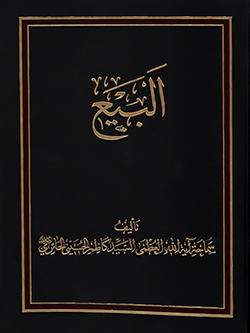 اَلبَيْع
تأليفُ
سَمَاحَةِ آيَةِ اللهِ العُظْمى السَّيِّد كاظِم الحُسَيْني الحائِري